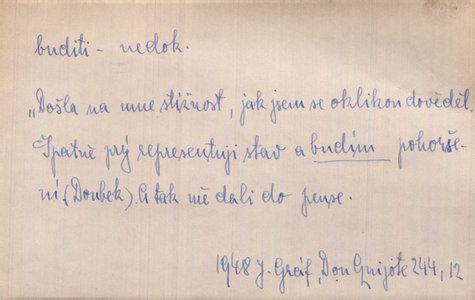 buditi – nedok.
„Došla na mne stížnost, jak jsem se oklikou dověděl.
Špatně prý representuji stav a budím pohorše-
ní (Doubek). A tak mě dali do pense.
1948 J. Gráf, Don Quijote 244, 12